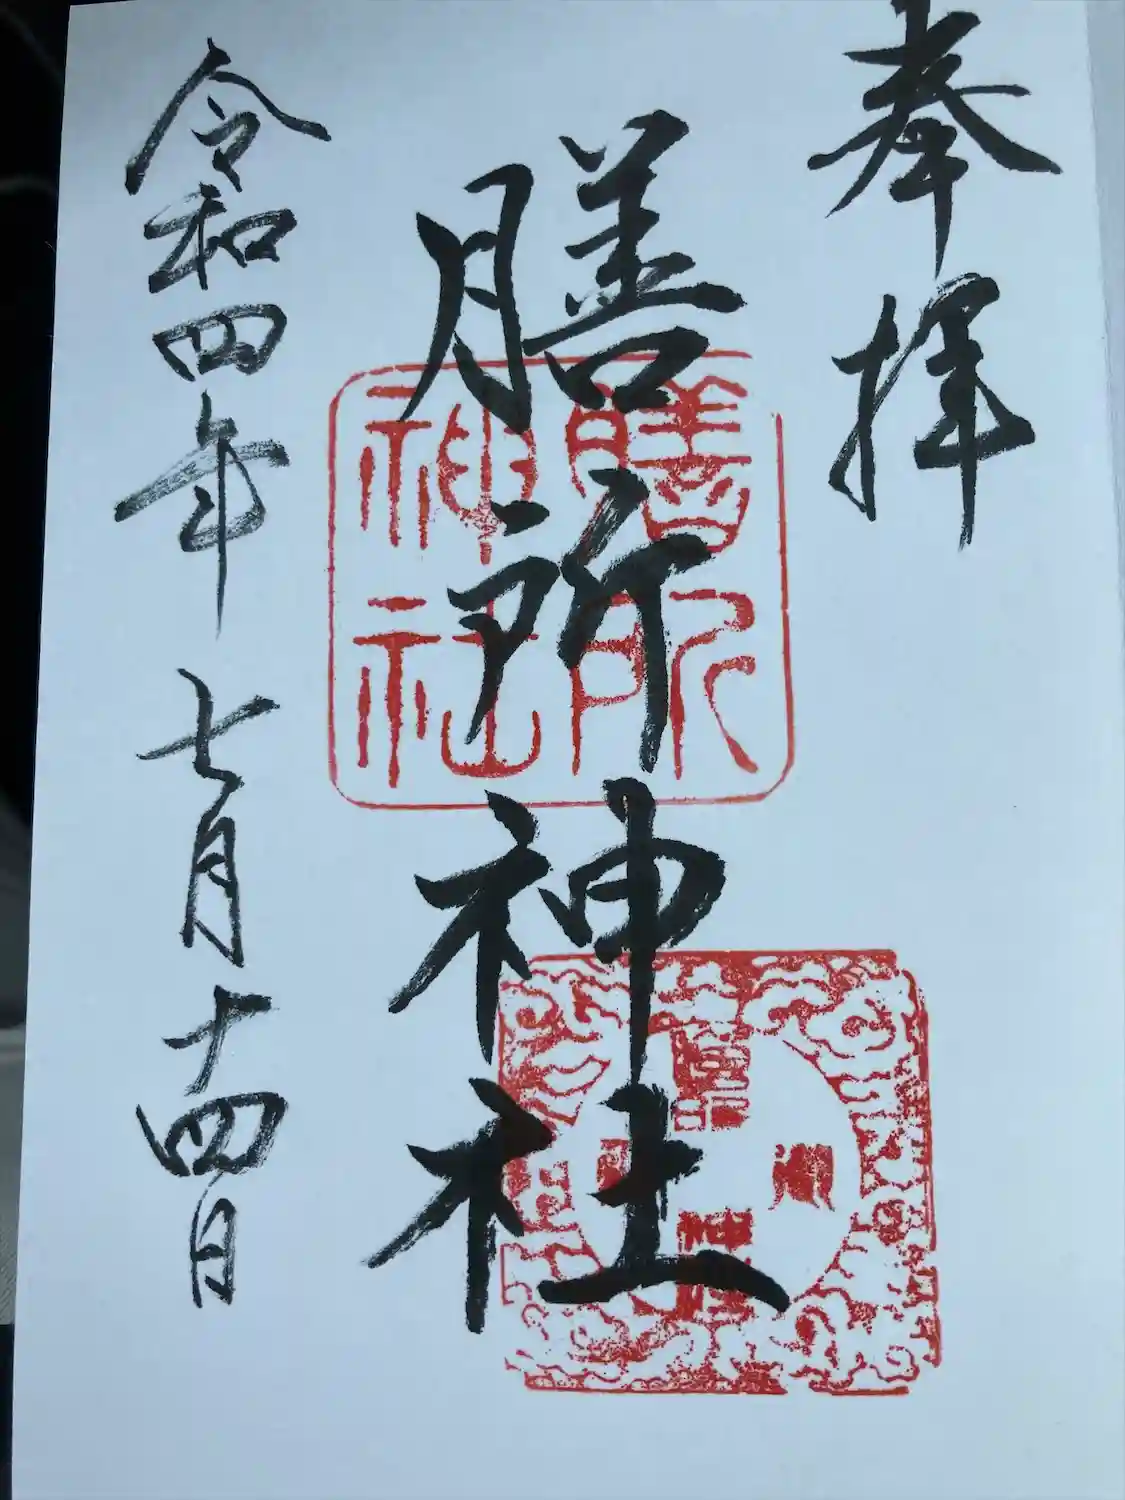 奉拝
膳所神社
令和四年七月十四日
膳所
神社